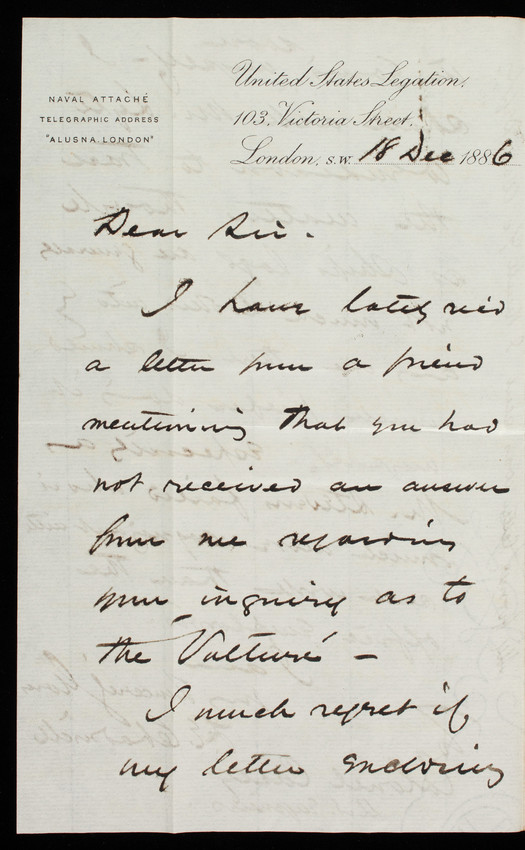 NAVAL ATTACHÉ
TELEGRAPHIC ADDRESS
"ALUSNA, LONDON"
United States Legation,
103, Victoria Street,
London, S.W. 18 Dec 1886
Dear Sir.
I have lately rec'd
a letter from a friend
mentioning that you had
not received an answer
from me regarding
your inquiry as to
the "Vulture" –
I much regret if
my letter enclosing